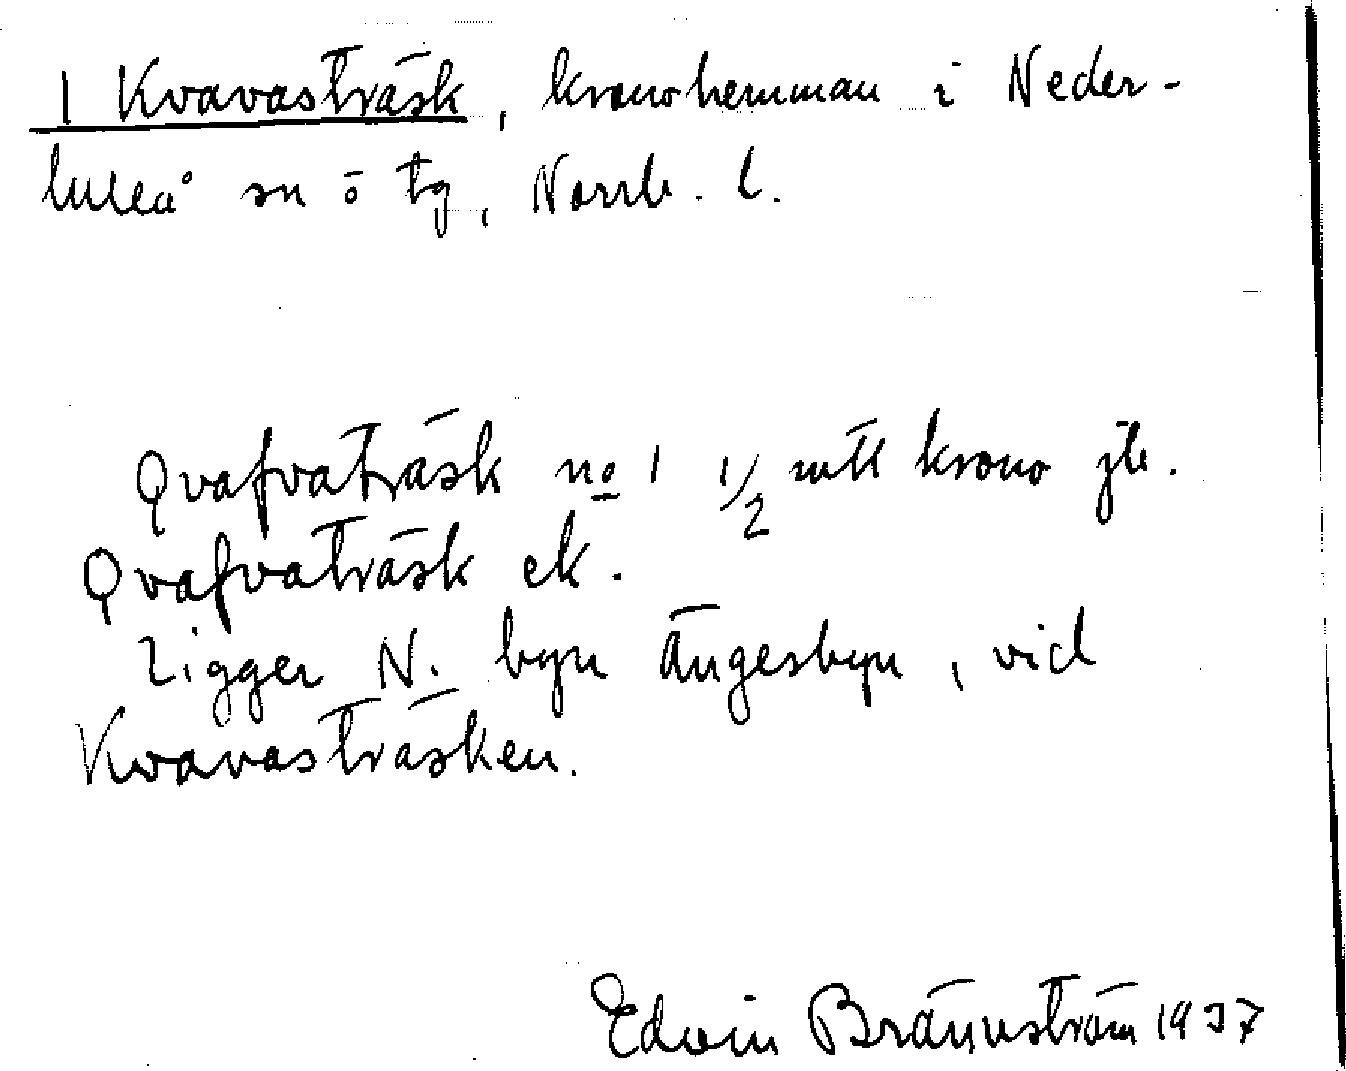 1 Kvavasträsk, kronohemman i Neder-
luleå sn o tg, Norrb. l.
Qvafvaträsk no 1 1/2 mtl krono jb.
Qvafvaträsk ek.
Ligger N. byn Ängesbyn, vid
Kvavasträsken.
Edvin Brännström 1937